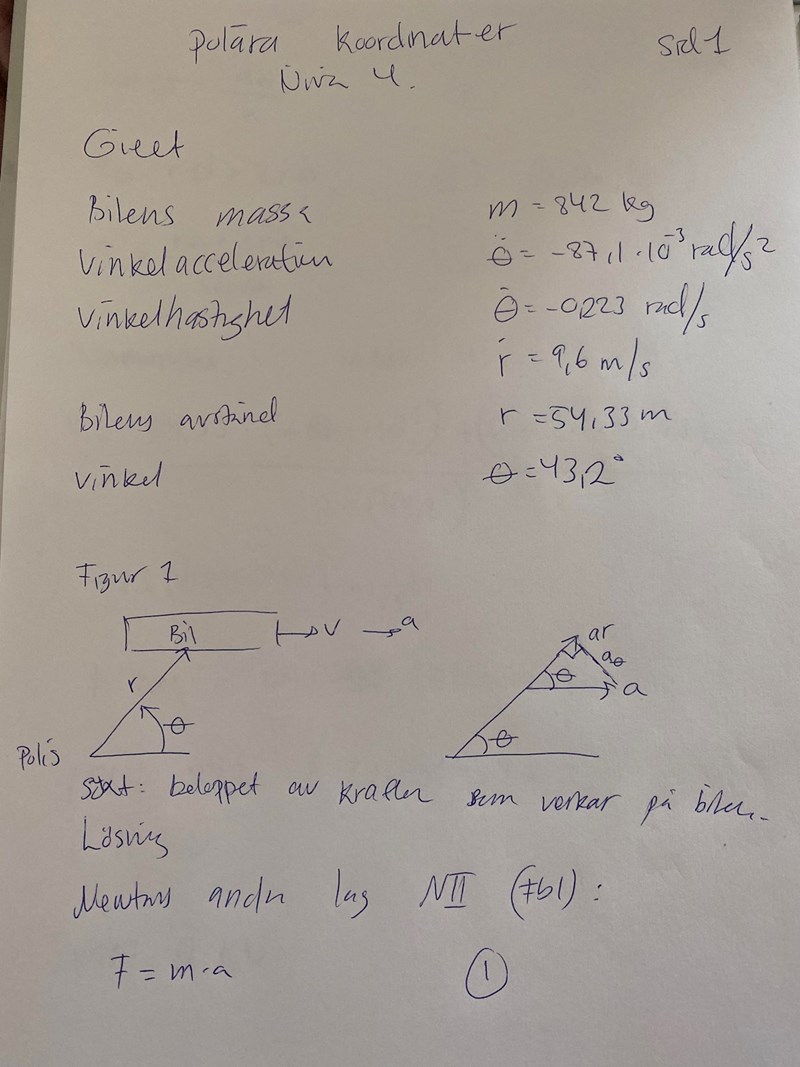 Polära koordinater sid 1
Nivå 4.
Givet
Bilens massa m = 842 kg
Vinkelacceleration θ̈ = -87,1·10⁻³ rad/s²
Vinkelhastighet θ̇ = -0,223 rad/s
ṙ = 9,6 m/s
Bilens avstånd r = 54,33 m
Vinkel θ = 43,2°
Figur 1
Bil v a
r θ
ar
aθ
θ a
Polis θ
Sökt: beloppet av kraften som verkar på bilen.
Lösning
Newtons andra lag NII (Fbl):
F = m·a ①